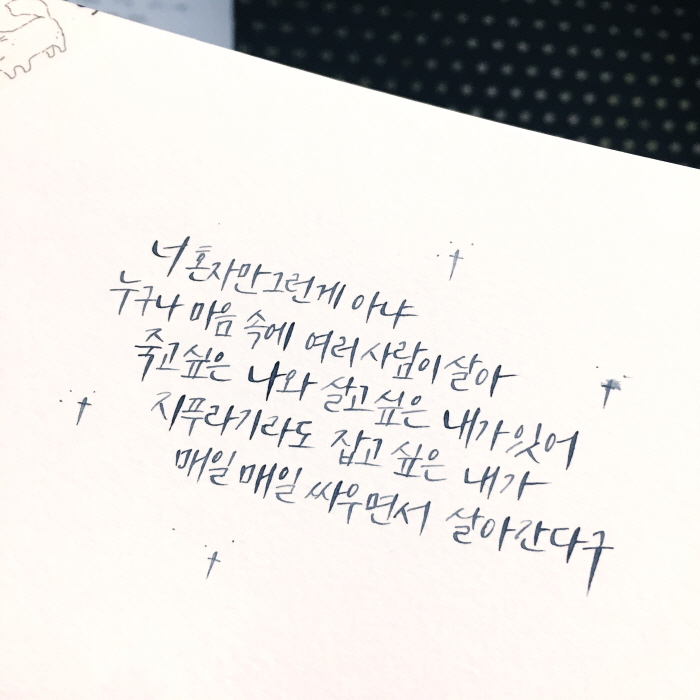 너 혼자만 그런게 아냐
누구나 마음 속에 여러 사람이 살아
죽고싶은 나와 살고싶은 내가 있어
지푸라기라도 잡고 싶은 내가
매일매일 싸우면서 살아간다구